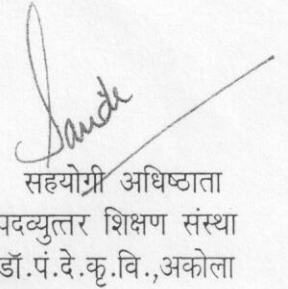 सहयोगी अधिष्ठाता
पदव्युत्तर शिक्षण संस्था
डॉ.पं.दे.कृ.वि.,अकोला